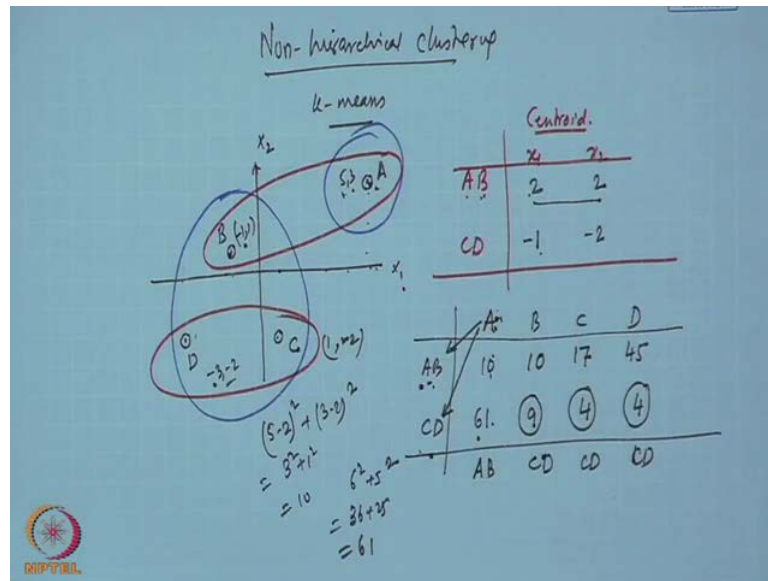 Non-hierarchical clustering
k-means
x₂
5,3 A
B (-1,1)
x₁
D
C (1,-2)
-3,-2
(5-2)² + (3-2)²
= 3²+1²
= 10
6²+5²
= 36+25
= 61
Centroid.
x₁ x₂
AB 2 2
CD -1 -2
A B C D
AB 10 10 17 45
CD 61. 9 4 4
AB CD CD CD
NPTEL